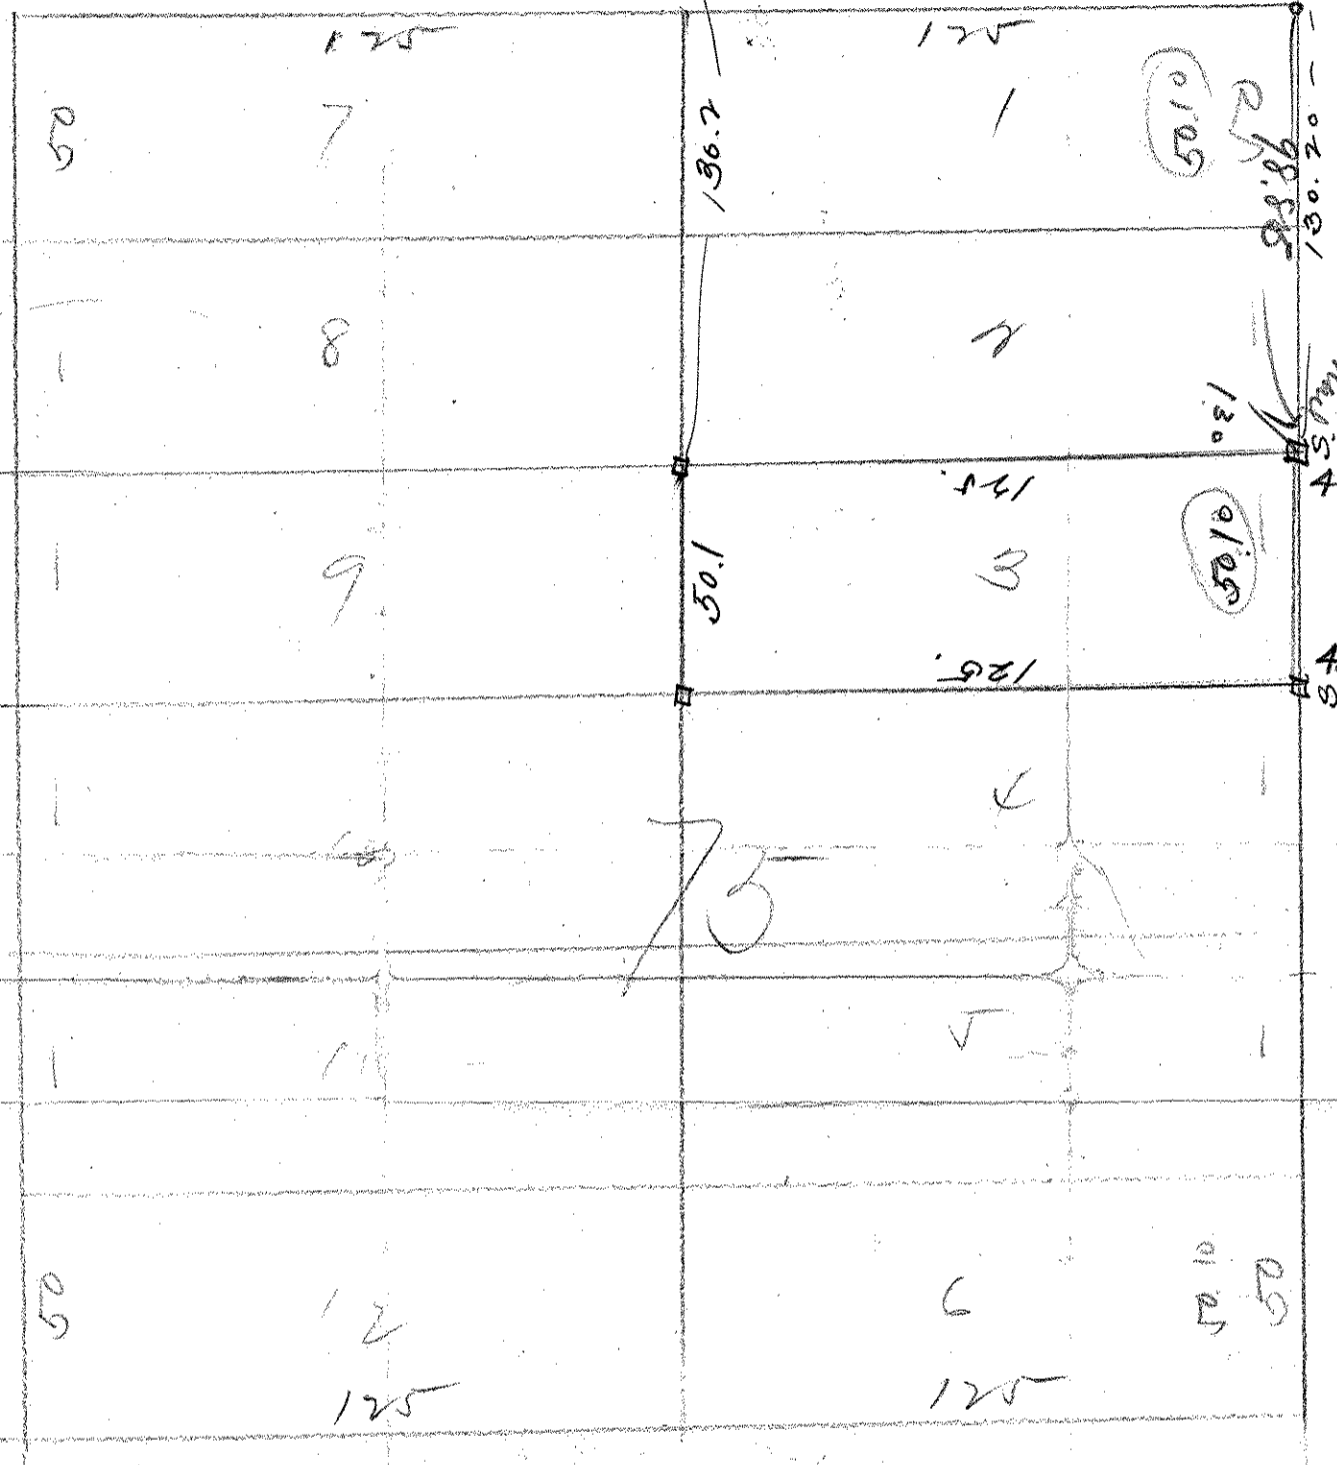 125
125
50
7
136.2
1
50.10
50
98.85
130.20
8
2
130
S.
4
125.
9
50.1
3
50.10
125.
4
S.
4
73
5
6
50
12
50.10
50
125
125